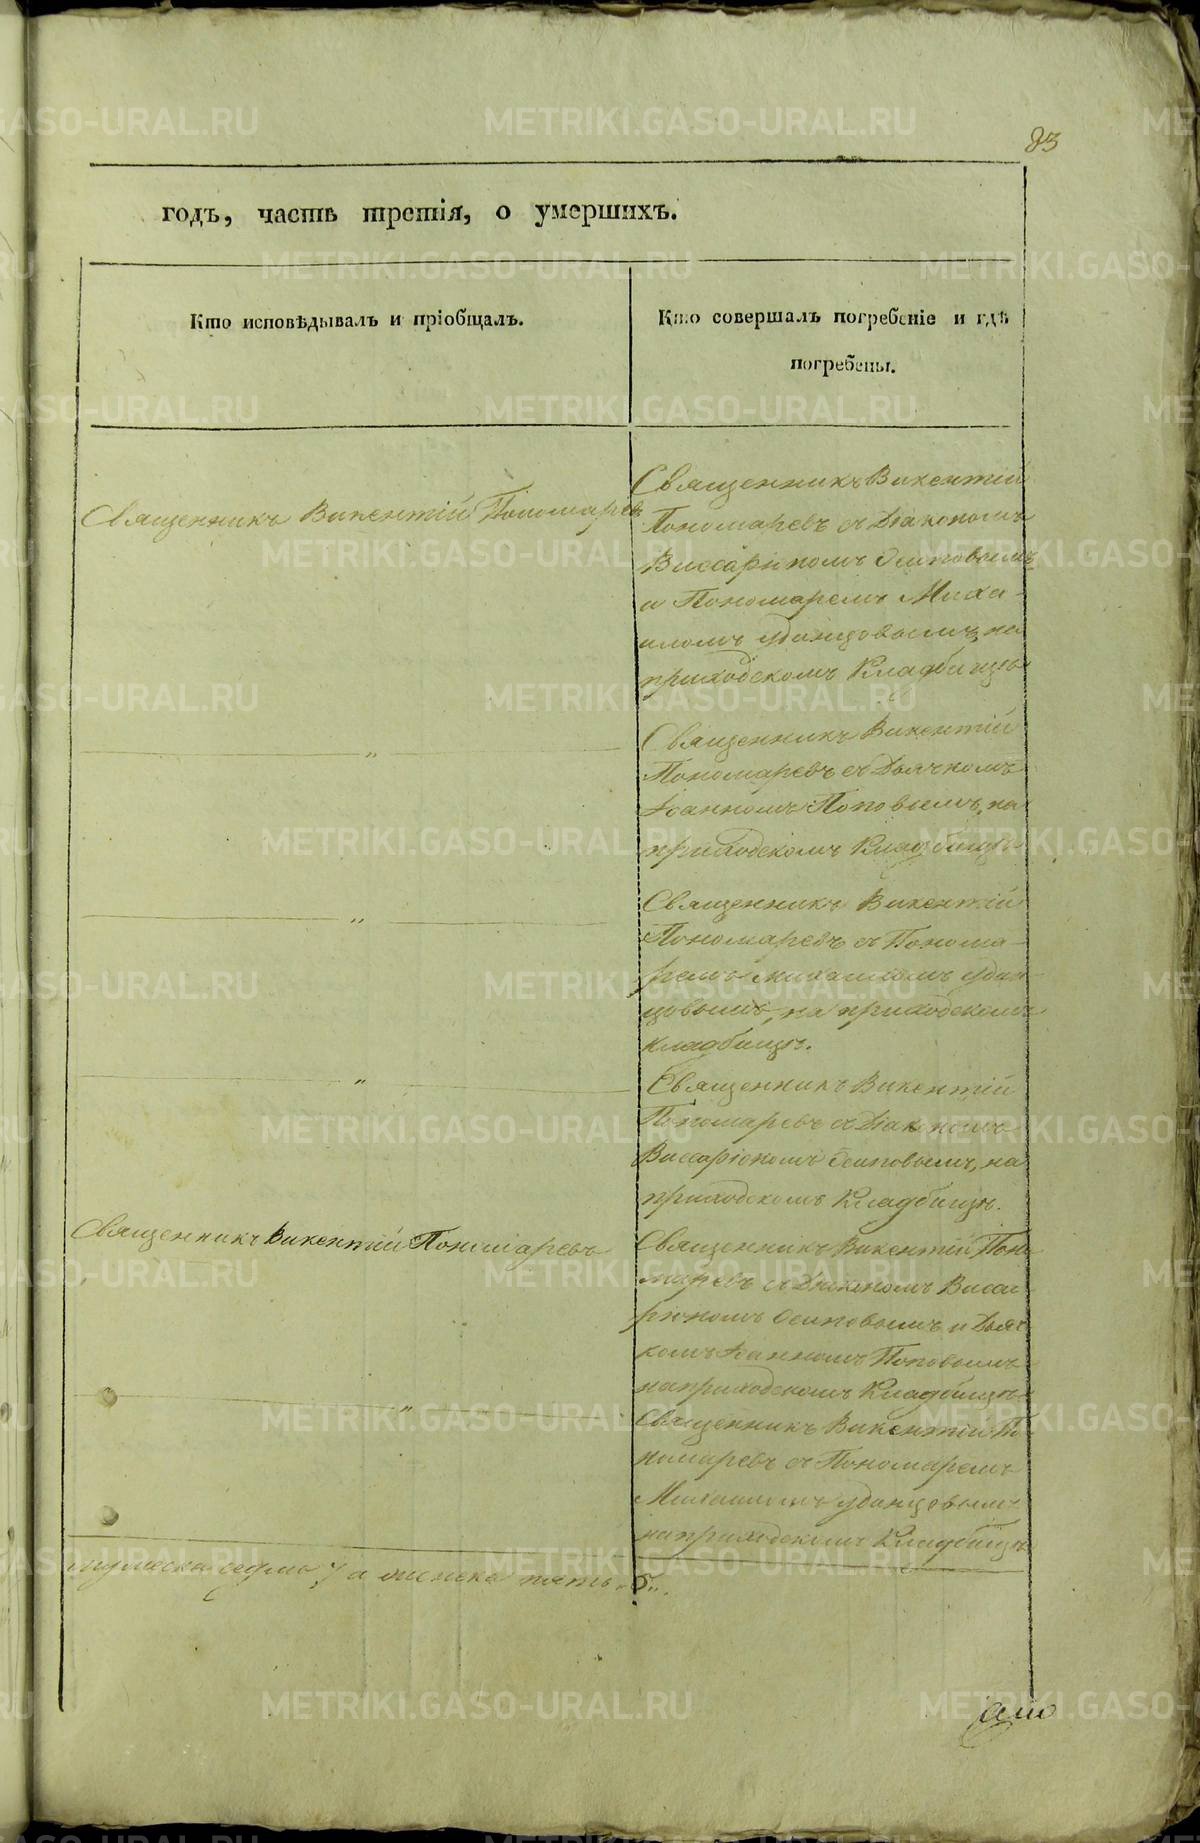 83
годъ, часть третія, о умершихъ.
Кто исповѣдывалъ и пріобщалъ.
Кто совершалъ погребеніе и гдѣ
погребены.
Священникъ Викентій Пономаревъ
Священникъ Викентій
Пономаревъ съ Діакономъ
Виссаріономъ Осиповымъ
и Пономаремъ Миха-
иломъ Удинцовымъ, на
приходскомъ Кладбищѣ
"
Священникъ Викентій
Пономаревъ съ Дьячкомъ
Іоанномъ Поповымъ, на
приходскомъ Кладбищѣ
"
Священникъ Викентій
Пономаревъ съ Понома-
ремъ Михаиломъ Удин-
цовымъ, на приходскомъ
кладбищѣ.
"
Священникъ Викентій
Пономаревъ съ Діакономъ
Виссаріономъ Осиповымъ, на
приходскомъ Кладбищѣ.
Священникъ Викентій Пономаревъ
Священникъ Викентій Поно
маревъ съ Діакономъ Висса
ріономъ Осиповымъ и Дьяч
комъ Іоанномъ Поповымъ
на приходскомъ Кладбищѣ
"
Священникъ Викентій По
номаревъ съ Пономаремъ
Михаиломъ Удинцовымъ
на приходскомъ Кладбищѣ
мужеска седмь 7 а женска пять
METRIKI.GASO-URAL.RU